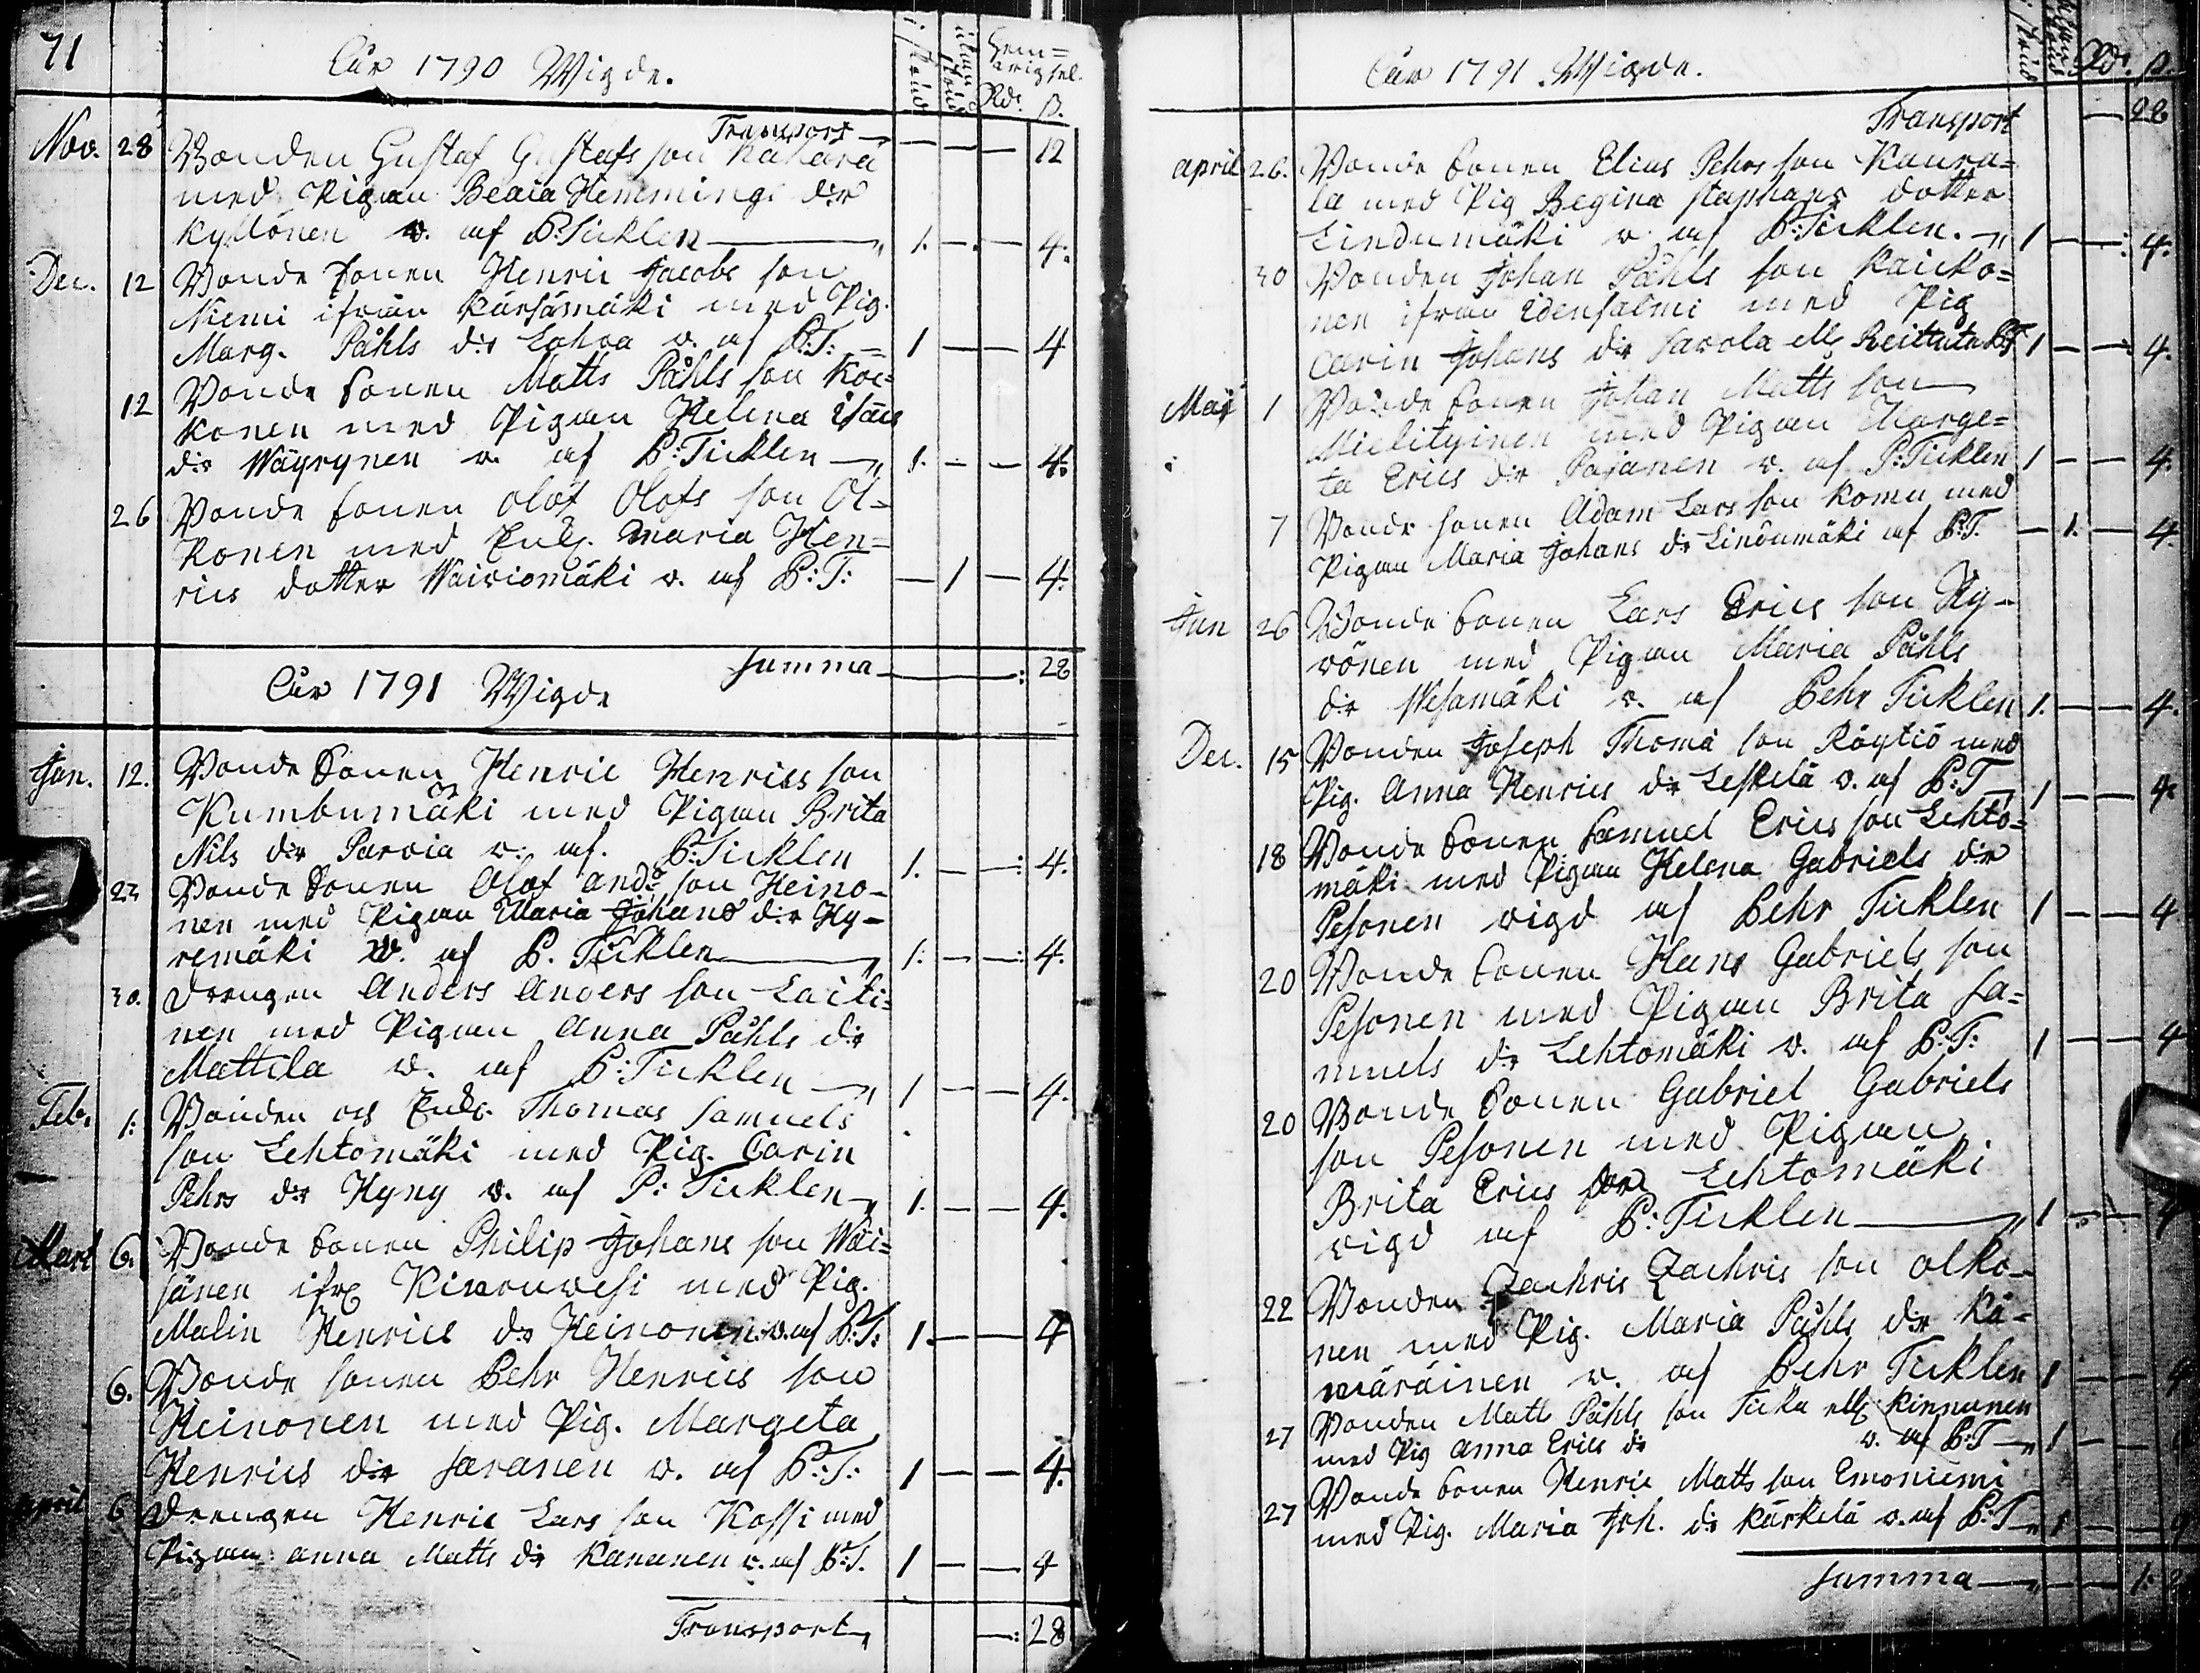 71
Åår 1790 Wigde.
i stånd
utom stånd
Hem=
Rdr. ß.
Transport — 12
Nov. 28 Bonden Gustaf Gustafs son Kähärä
med Pigan Beata Hemmings dr
Kyllönen v. af P: Ticklen — 1. — 4.
Dec. 12 Bonde sonen Henric Jacobs son
Niemi ifrån Kärsämäki med Pig.
Marg. Påhls dr Lohva v. af P:T: — 1 — 4
12 Bonde sonen Matts Påhls son Koc=
konen med Pigan Helena Isacs
dr Wäyrynen v. af P: Ticklen — 1. — 4.
26 Bonde sonen Olof Olofs son Ol=
konen med Enk. Maria Hen=
rics dotter Wairiomäki v. af P:T: — 1 — 4.
Summa — 28
Åår 1791 Wigde
Jan. 12. Bonde Sonen Henric Henrics son
Kumbumäki med Pigan Brita
Nils dr Parvia v. af. P: Ticklen 1. — 4.
23 Bonde Sonen Olof And: son Heino-
nen med Pigan Maria Johans dr Hy-
remäki v. af P. Ticklen — 1. — 4.
30. Drengen Anders Anders son Laiti=
nen med Pigan Anna Påhls dr
Mattila v. af P: Ticklen — 1 — 4.
Feb. 1: Bonden och Enkl. Thomas Samuels
son Lehtomäki med Pig. Carin
Pehrs dr Hyny v. af P: Ticklen 1. — 4.
Mart 6. Bonde sonen Philip Johans son Wäi=
sänen ifr. Kiuruwesi med Pig.
Malin Henrics dr Heinonen v. af P:T: 1. — 4
6. Bonde sonen Pehr Henrics son
Heinonen med Pig. Margeta
Henrics dr Saranen v. af P:T: 1 — 4.
April 6 Drengen Henric Lars son Kossi med
Pigan Anna Matts dr Kananen v. af P:T. 1 — 4
Transport — 28
Åår 1791 Wigde.
i stånd
Rdr. ß.
Transport — 28
April 26. Bonde sonen Elias Pehrs son Kaura=
la med Pig Regina Staphans dotter
Lindumäki v. af P: Ticklen. 1 — 4.
30 Bonden Johan Påhls son Kaicko=
nen ifrån Idensalmi med Pig
Carin Johans dr Savola ell. Reittula P:T 1 — 4.
Maj 1 Bonde sonen Johan Matts son
Mielityinen med Pigan Marge=
ta Erics dr Pajanen v. af P: Ticklen 1 — 4.
7 Bonde sonen Adam Lars son Komu med
Pigan Maria Johans dr Lindumäki af P:T. — 1. — 4.
Jun 26 Bonde sonen Lars Erics son Ry-
vönen med Pigan Maria Påhls
dr Wesamäki v. af Pehr Ticklen 1. — 4.
Dec. 15 Bonden Joseph Thoma son Röytiö med
Pig. Anna Henrics dr Leskelä v. af P:T 1 — 4.
18 Bonde sonen Samuel Erics son Lehto=
mäki med Pigan Helena Gabriels dr
Pesonen vigd af Pehr Ticklen 1 — 4
20 Bonde sonen Hans Gabriels son
Pesonen med Pigan Brita Sa=
muels dr Lehtomäki v. af P:T: 1 — 4
20 Bonde Sonen Gabriel Gabriels
son Pesonen med Pigan
Brita Erics Lehtomäki
vigd af P: Ticklen — 1 — 4
22 Bonden Zachris Zachris son Olko-
nen med Pig. Maria Påhls dr Kä=
märäinen v. af Pehr Ticklen 1 — 4
27 Bonden Matts Påhls son Ticka ell. Kinnunen
med Pig Anna Erics dr v. af P:T 1 —
27 Bonde sonen Henric Matts son Emoniemi
med Pig. Maria Joh. dr Kärkilä v. af P:T 1 —
Summa — 1.